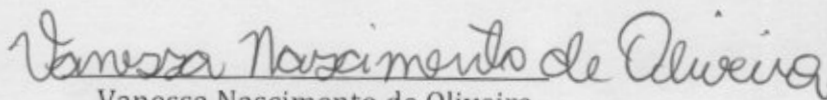 Vanessa Nascimento de Oliveira
Vanessa Nascimento de Oliveira